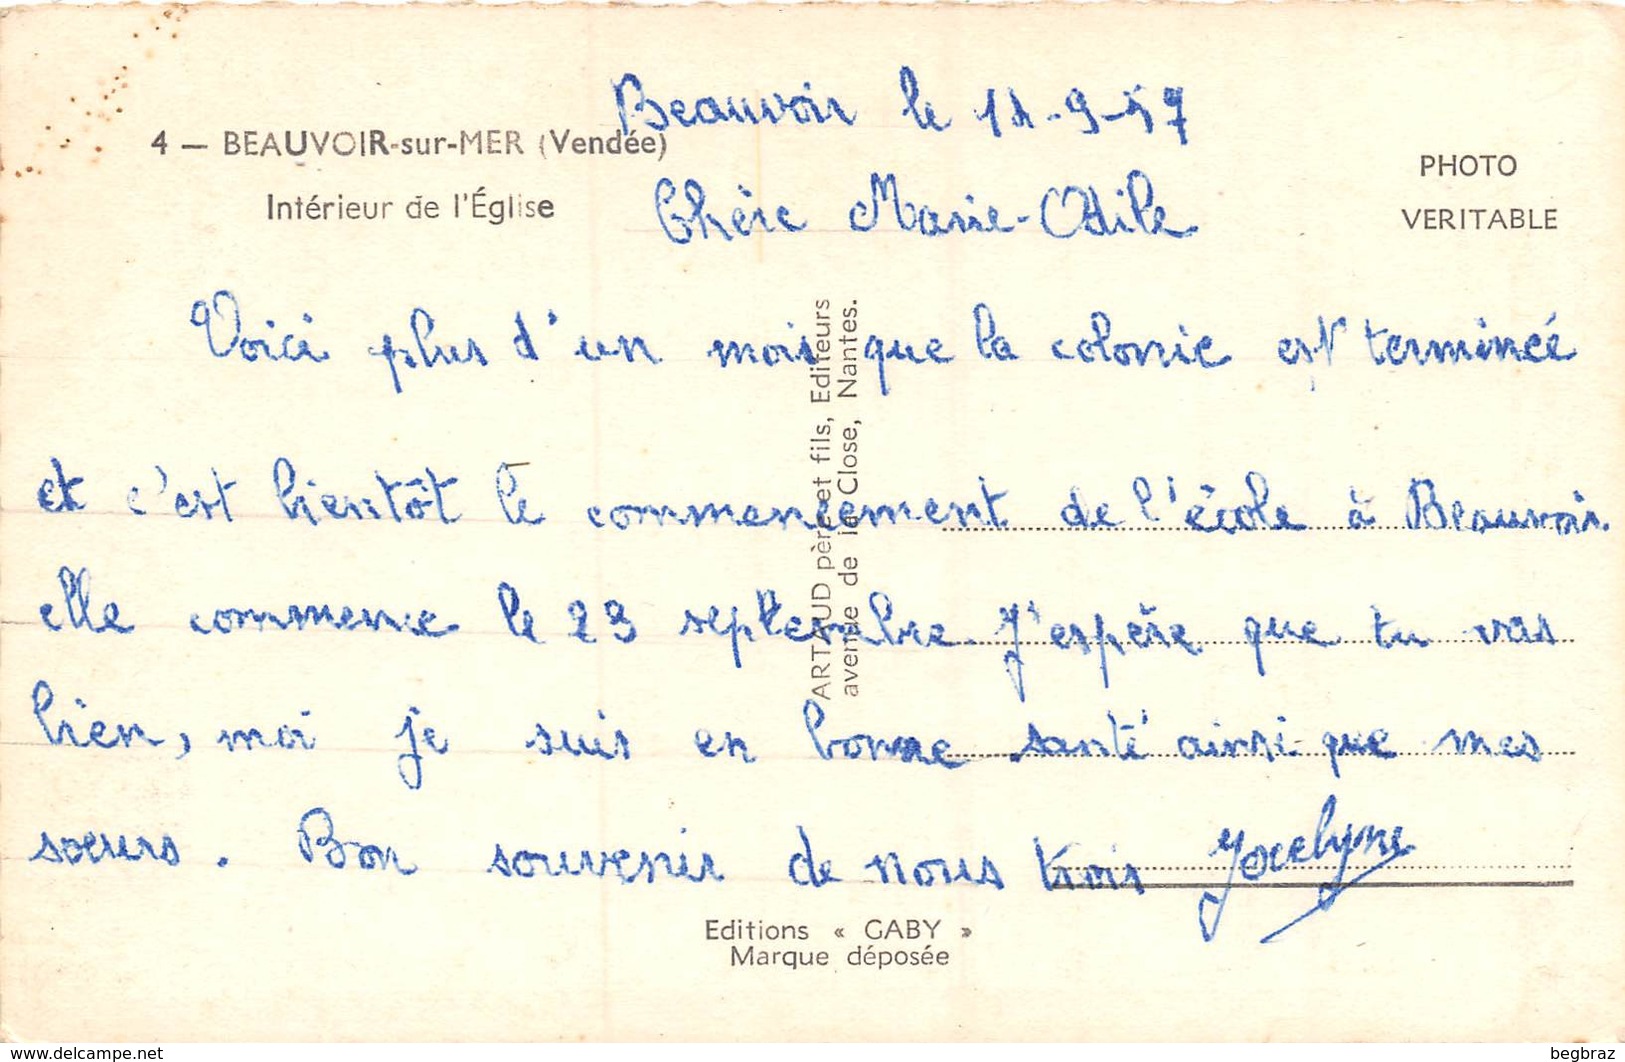 Beauvoir le 11-9-57
4 — BEAUVOIR-sur-MER (Vendée)
Intérieur de l'Église
PHOTO
VERITABLE
Chère Marie-Odile
Voici plus d'un mois que la colonie est terminée
et c'est bientôt le commencement de l'école à Beauvoir.
elle commence le 23 septembre. J'espère que tu vas
bien, moi je suis en bonne santé ainsi que mes
soeurs. Bon souvenir de nous trois Jocelyne
ARTAUD père et fils, Editeurs
avenue de la Close, Nantes.
Editions « GABY »
Marque déposée
www.delcampe.net
begbraz